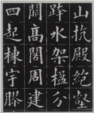 山抗殿絕壑
跨水架楹分
闕高閣周建
起棟宇膠